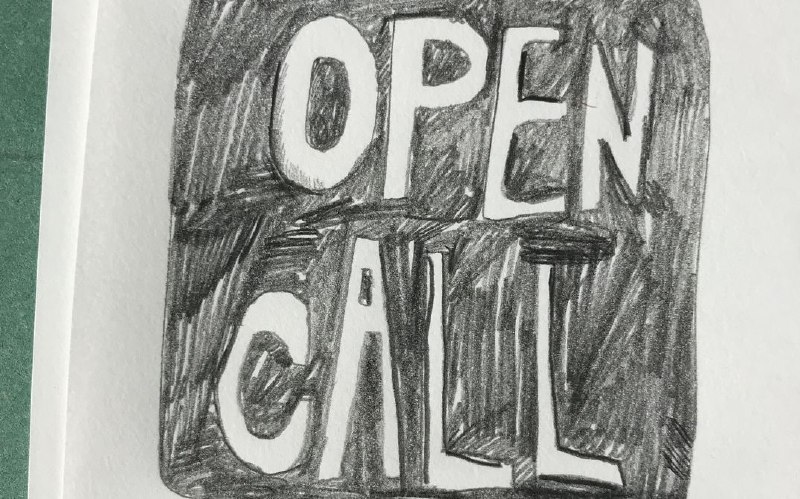 OPEN
CALL